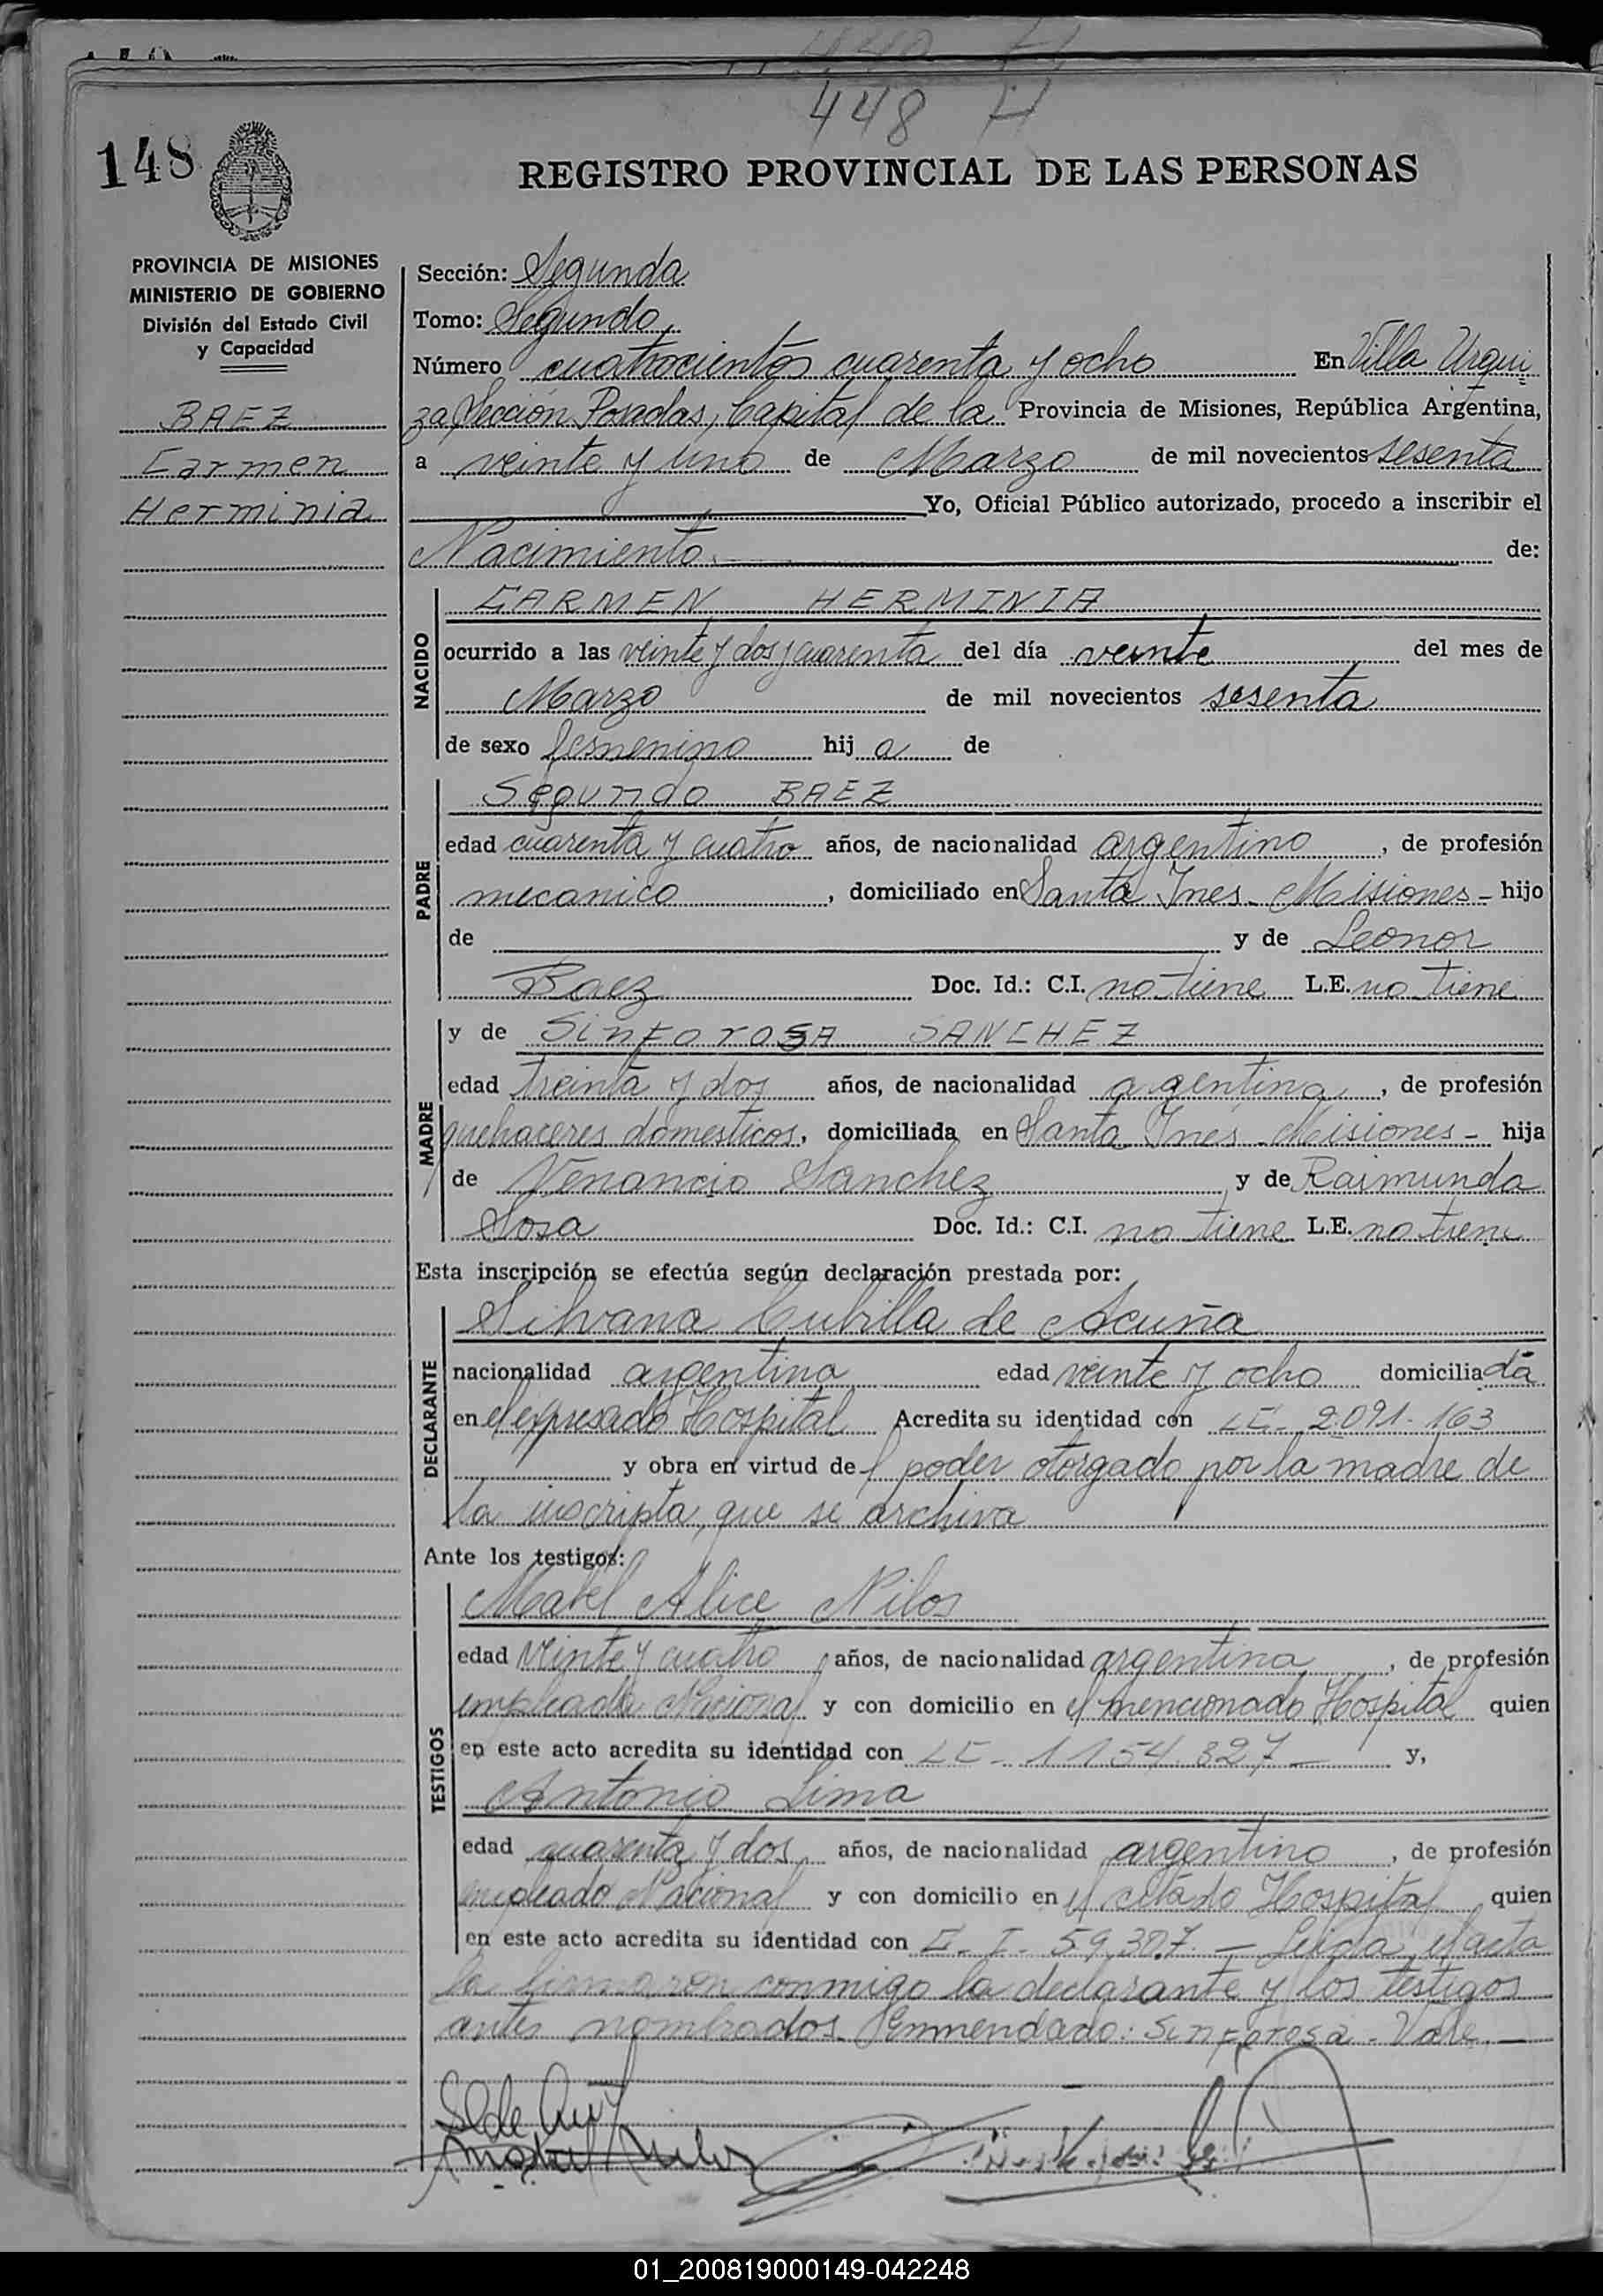 448 H
148
REGISTRO PROVINCIAL DE LAS PERSONAS
PROVINCIA DE MISIONES
MINISTERIO DE GOBIERNO
División del Estado Civil
y Capacidad
BAEZ
Carmen
Herminia
Sección: Segunda
Tomo: Segundo
Número cuatrocientos cuarenta y ocho En Villa Urqui
za Sección Posadas, Capital de la Provincia de Misiones, República Argentina,
a veinte y uno de Marzo de mil novecientos sesenta
Yo, Oficial Público autorizado, procedo a inscribir el
Nacimiento de:
NACIDO
CARMEN HERMINIA
ocurrido a las veinte y dos y cuarenta del día veinte del mes de
Marzo de mil novecientos sesenta
de sexo femenino hij a de
PADRE
Segundo BAEZ
edad cuarenta y cuatro años, de nacionalidad argentino, de profesión
mecanico, domiciliado en Santa Ines - Misiones - hijo
de y de Leonor
Baez Doc. Id.: C.I. no tiene L.E. no tiene
MADRE
y de SinforosA SANCHEZ
edad treinta y dos años, de nacionalidad argentina, de profesión
quehaceres domesticos, domiciliada en Santa Inés - Misiones - hija
de Venancio Sanchez y de Raimunda
Sosa Doc. Id.: C.I. no tiene L.E. no tiene
Esta inscripción se efectúa según declaración prestada por:
DECLARANTE
Silvana Cubilla de Acuña
nacionalidad argentina edad veinte y ocho domiciliada
en el expresado Hospital Acredita su identidad con LE- 2.091.163
y obra en virtud del poder otorgado por la madre de
la inscripta, que se archiva
Ante los testigos:
TESTIGOS
Mabel Alice Nilos
edad veinte y cuatro años, de nacionalidad argentina, de profesión
empleada Nacional y con domicilio en el mencionado Hospital quien
en este acto acredita su identidad con LE - 1154.327 - y,
Antonio Lima
edad cuarenta y dos años, de nacionalidad argentino, de profesión
empleado Nacional y con domicilio en el citado Hospital quien
en este acto acredita su identidad con C.I. 59.307. - Leida el acta
la firmaron conmigo la declarante y los testigos
antes nombrados. Enmendado: Sinforosa - Vale. -
01_200819000149-042248